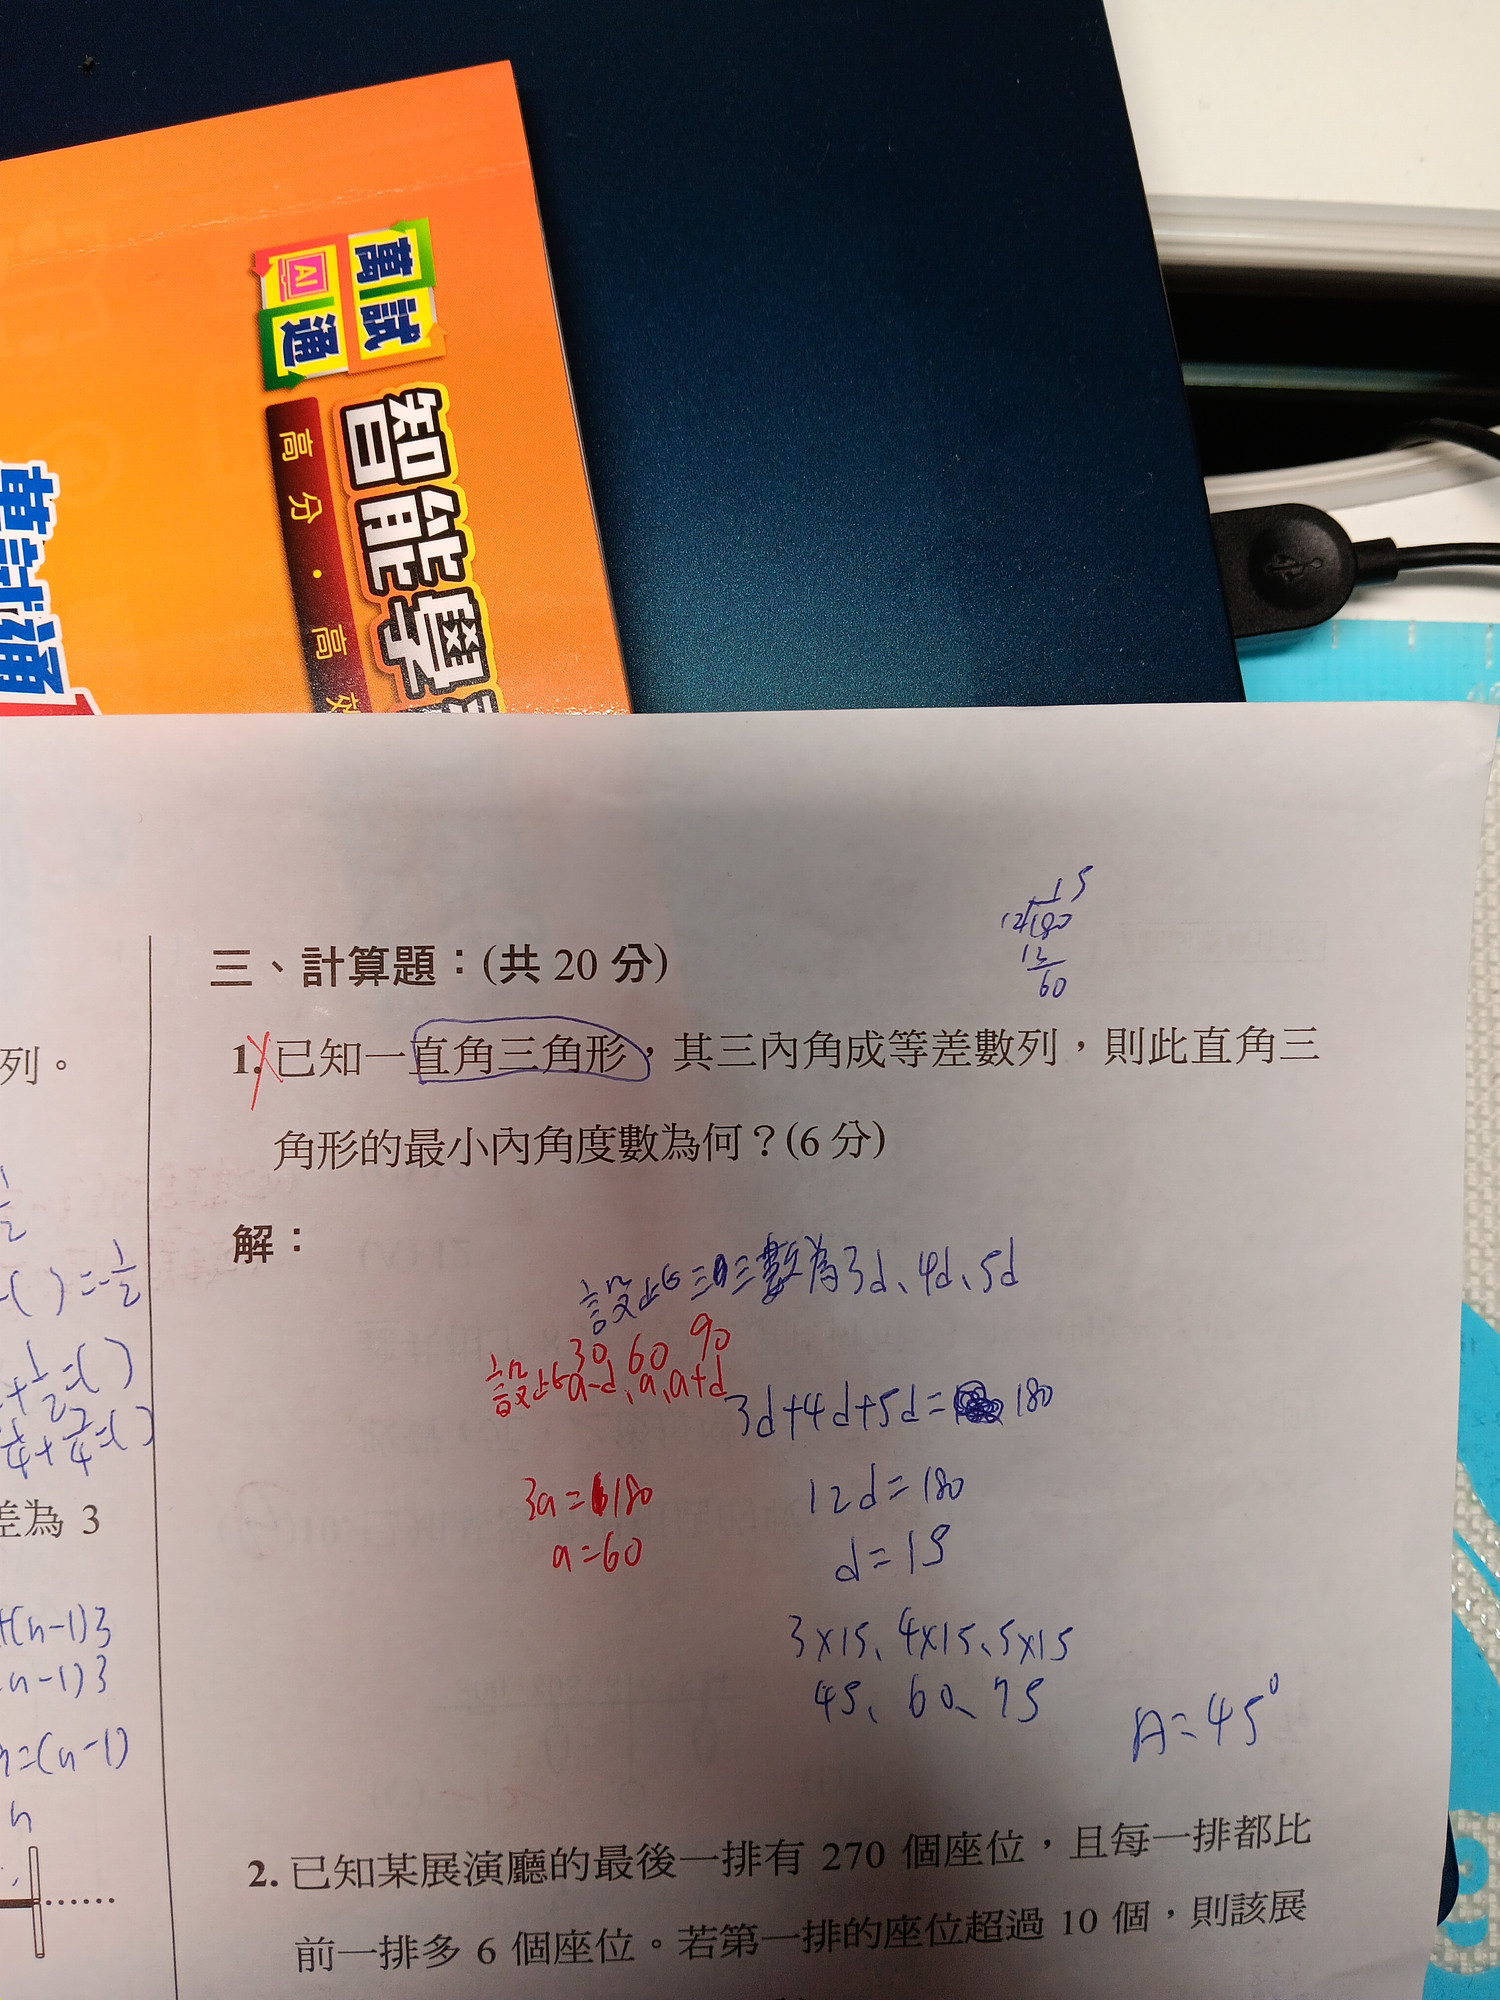 萬試
AI通
智能學
高分・高效
萬試通
15
12√180
12
60
三、計算題：(共 20 分)
1. 已知一直角三角形，其三內角成等差數列，則此直角三
角形的最小內角度數為何？(6 分)
解：
設此三數為3d、4d、5d
30 60 90
設此a-d、a、a+d
3d+4d+5d=180
3a=180
12d=180
a=60
d=15
3×15、4×15、5×15
45、60、75
A=45°
2. 已知某展演廳的最後一排有 270 個座位，且每一排都比
前一排多 6 個座位。若第一排的座位超過 10 個，則該展
列。
1/2
-( )=-1/2
+1/2=( )
差為 3
+(n-1)3
(n-1)3
=(n-1)
n